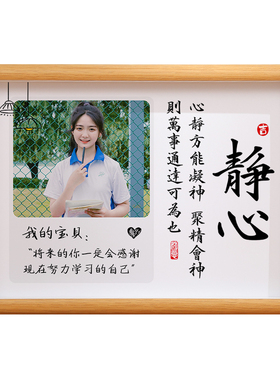 静心
心靜方能凝神 聚精會神
則萬事通達可為也
吉
我的宝贝：
“将来的你一定会感谢
现在努力学习的自己”